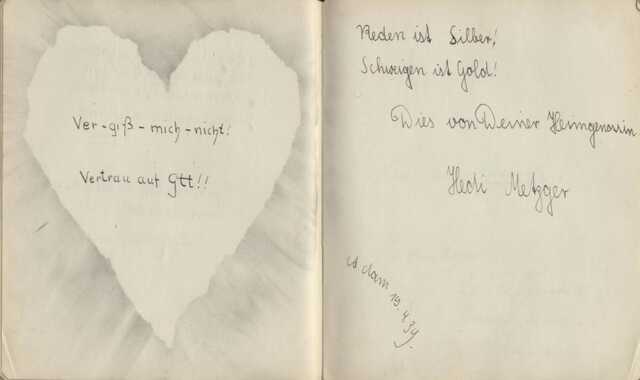 Ver-giß-mich-nicht!
Vertrau auf Gtt!!
Reden ist Silber!
Schweigen ist Gold!
Dies von Deiner Heimgenossin
Hedi Metzger
dam 19.4.39.